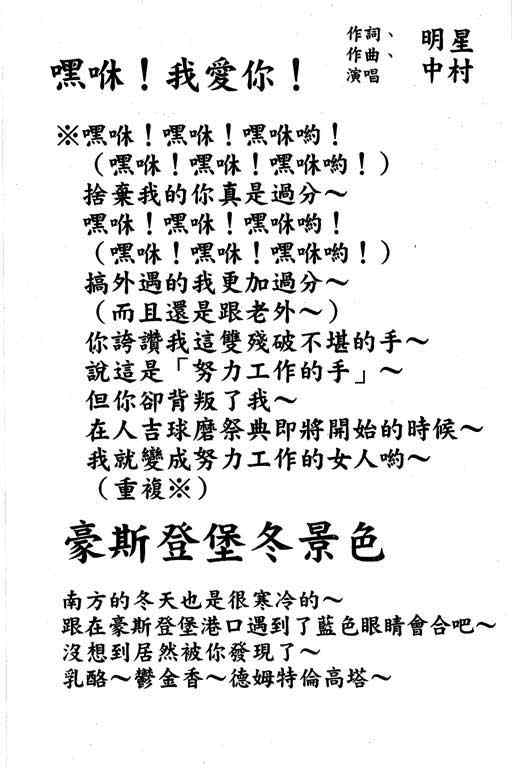 作詞、
作曲、 明星
演唱 中村
嘿咻！我愛你！
※嘿咻！嘿咻！嘿咻喲！
（嘿咻！嘿咻！嘿咻喲！）
捨棄我的你真是過分～
嘿咻！嘿咻！嘿咻喲！
（嘿咻！嘿咻！嘿咻喲！）
搞外遇的我更加過分～
（而且還是跟老外～）
你誇讚我這雙殘破不堪的手～
說這是「努力工作的手」～
但你卻背叛了我～
在人吉球磨祭典即將開始的時候～
我就變成努力工作的女人喲～
（重複※）
豪斯登堡冬景色
南方的冬天也是很寒冷的～
跟在豪斯登堡港口遇到了藍色眼睛會合吧～
沒想到居然被你發現了～
乳酪～鬱金香～德姆特倫高塔～